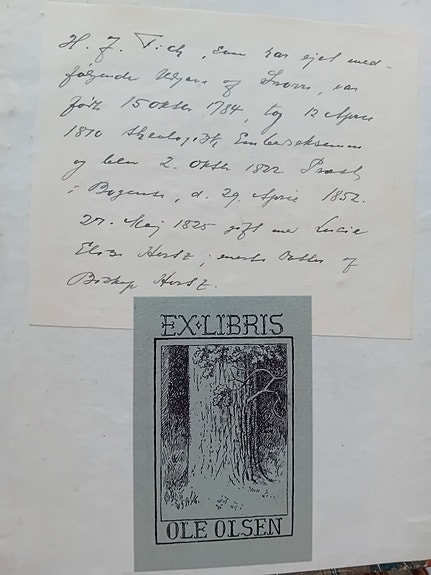 H. J. Fich, som har ejet med-
følgende Udgave af , var
født 15 Oktbr 1784, tog 12 April
1810 theologisk Embedseksamen
og blev 2. Oktbr 1822 Præst
i Bogense, d. 29. April 1852.
27. Maj 1825 gift med Lucie
Elise Hertz, eneste Datter af
Biskop Hertz.
EX·LIBRIS
OLE OLSEN